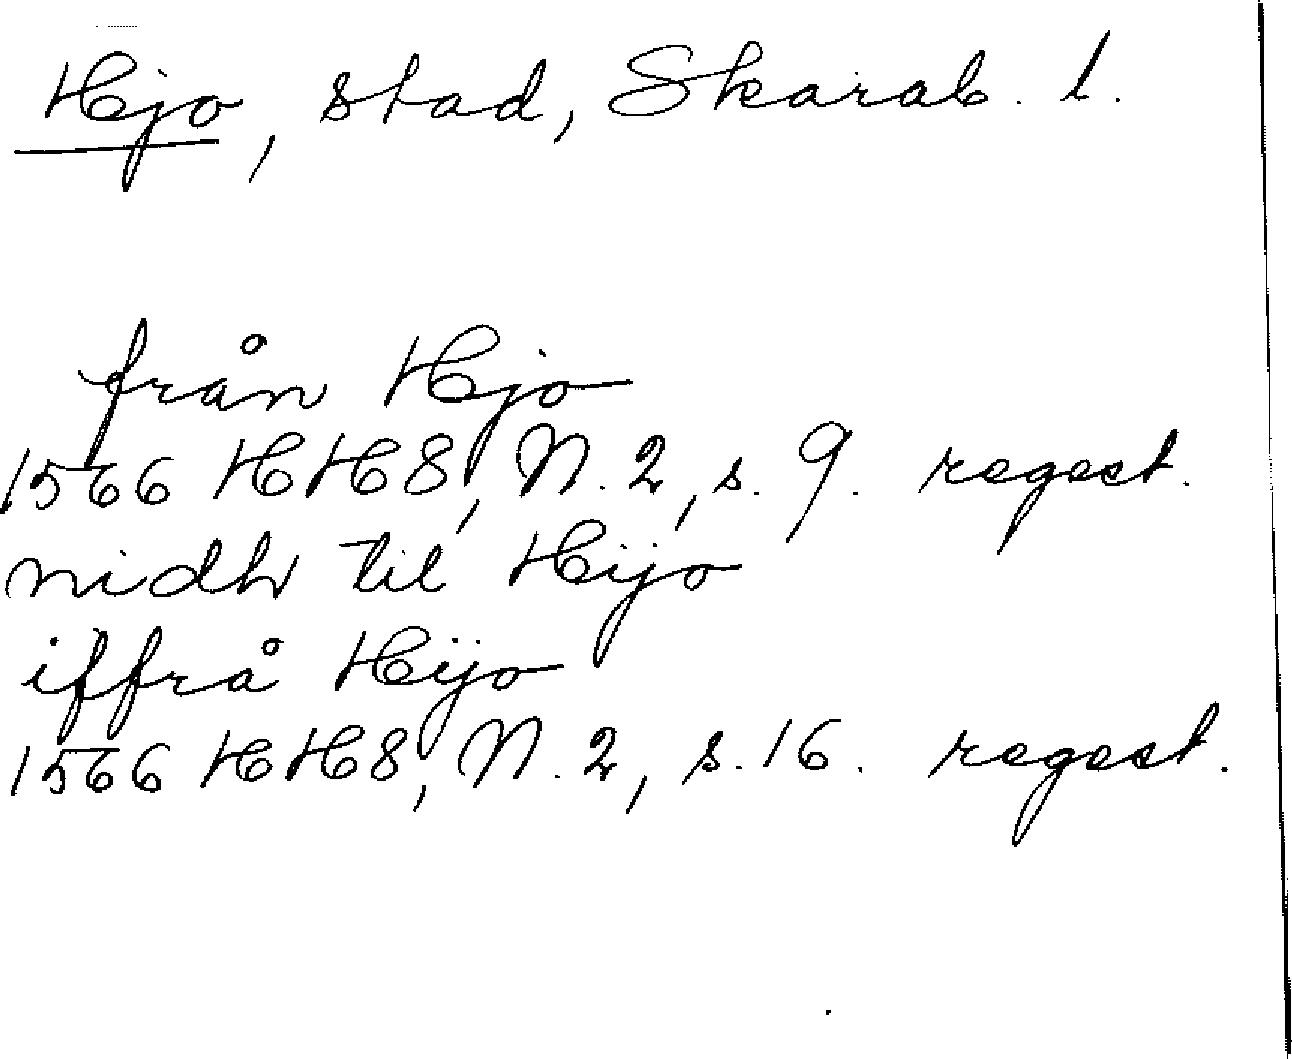 Hjo, stad, Skarab. l.
från Hjo
1566 HH8, N. 2, s. 9. regest.
nidh til Hijo
iffrå Hÿo
1566 HH8, N. 2, s. 16. regest.